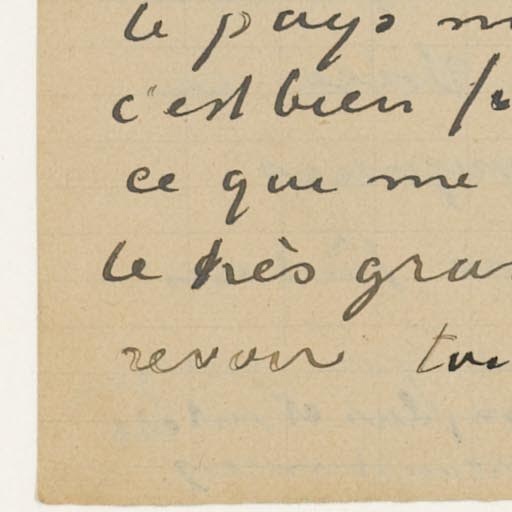 le pays
c'est bien
ce que me
le très
revoir